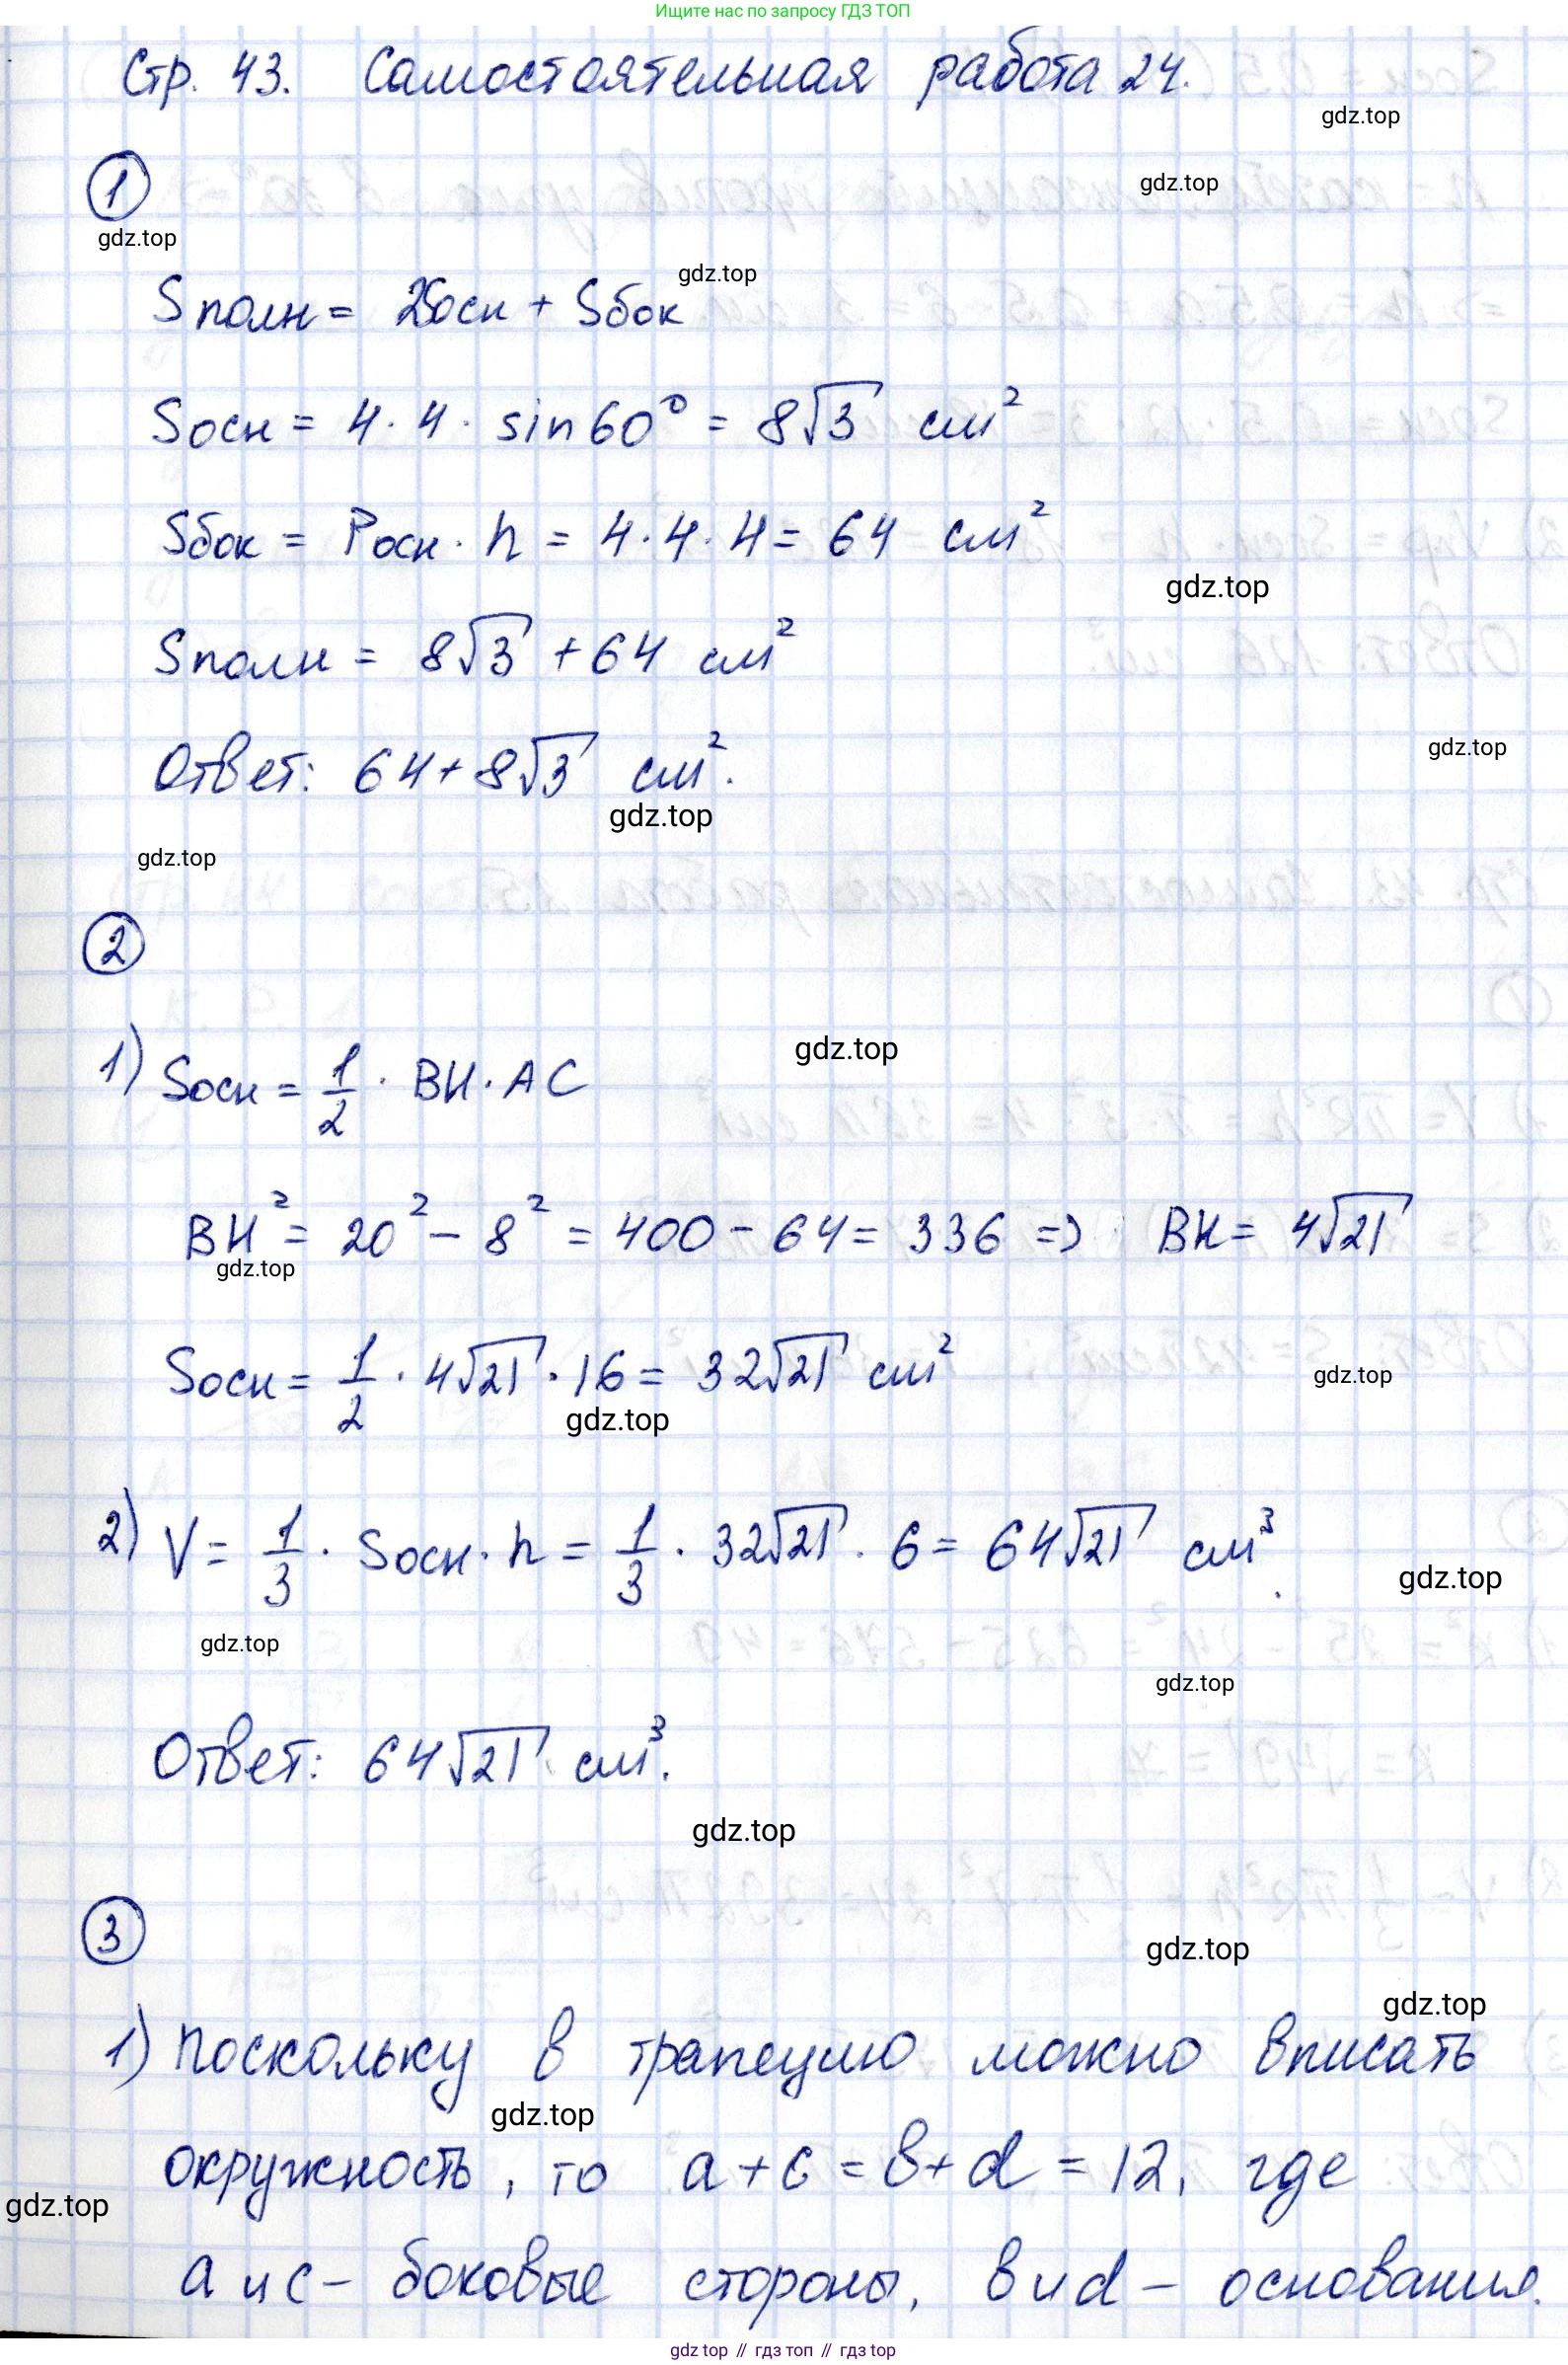 Ищите нас по запросу ГДЗ ТОП
Стр. 43. Самостоятельная работа 24.
gdz.top
gdz.top
1
gdz.top
gdz.top
Sполн = 2Sосн + Sбок
Sосн = 4 · 4 · sin 60° = 8√3 см²
Sбок = Pосн · h = 4 · 4 · 4 = 64 см²
gdz.top
Sполн = 8√3 + 64 см²
Ответ: 64 + 8√3 см².
gdz.top
gdz.top
gdz.top
2
gdz.top
1) Sосн = 1/2 · BH · AC
BH² = 20² - 8² = 400 - 64 = 336 => BH = 4√21
gdz.top
Sосн = 1/2 · 4√21 · 16 = 32√21 см²
gdz.top
gdz.top
2) V = 1/3 · Sосн · h = 1/3 · 32√21 · 6 = 64√21 см³.
gdz.top
gdz.top
gdz.top
Ответ: 64√21 см³.
gdz.top
3
gdz.top
gdz.top
1) Поскольку в трапецию можно вписать
gdz.top
окружность, то a + c = b + d = 12, где
gdz.top
a и c - боковые стороны, b и d - основания.
gdz top // гдз топ // gdz top